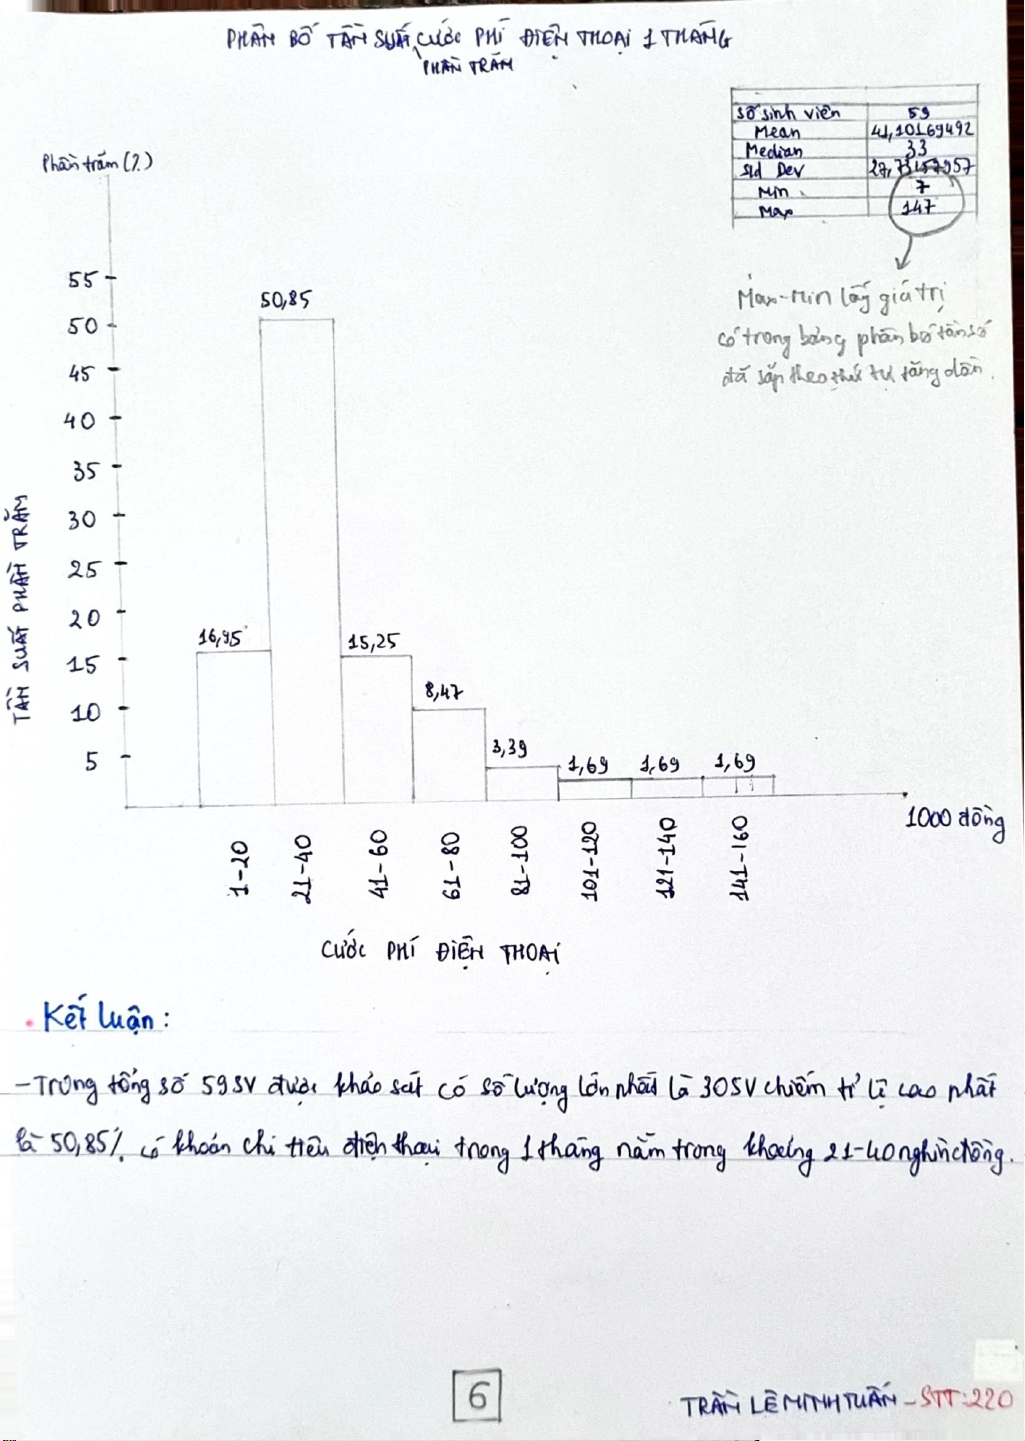 PHÂN BỐ TẦN SUẤT CƯỚC PHÍ ĐIỆN THOẠI 1 THÁNG
PHẦN TRĂM
số sinh viên 59
Mean 41,10169492
Median 33
Std Dev 27,73157957
Min 7
Max 147
Max-Min lấy giá trị
có trong bảng phân bố tần số
đã sắp theo thứ tự tăng dần.
Phần trăm (%)
TẦN SUẤT PHẦN TRĂM
55
50
45
40
35
30
25
20
15
10
5
16,95
50,85
15,25
8,47
3,39
1,69
1,69
1,69
1000 đồng
1-20
21-40
41-60
61-80
81-100
101-120
121-140
141-160
CƯỚC PHÍ ĐIỆN THOẠI
Kết luận:
- Trong tổng số 59SV được khảo sát có số lượng lớn nhất là 30SV chiếm tỉ lệ cao nhất
là 50,85% có khoản chi tiêu điện thoại trong 1 tháng nằm trong khoảng 21-40 nghìn đồng.
6
TRẦN LÊ MINH TUẤN - STT:220